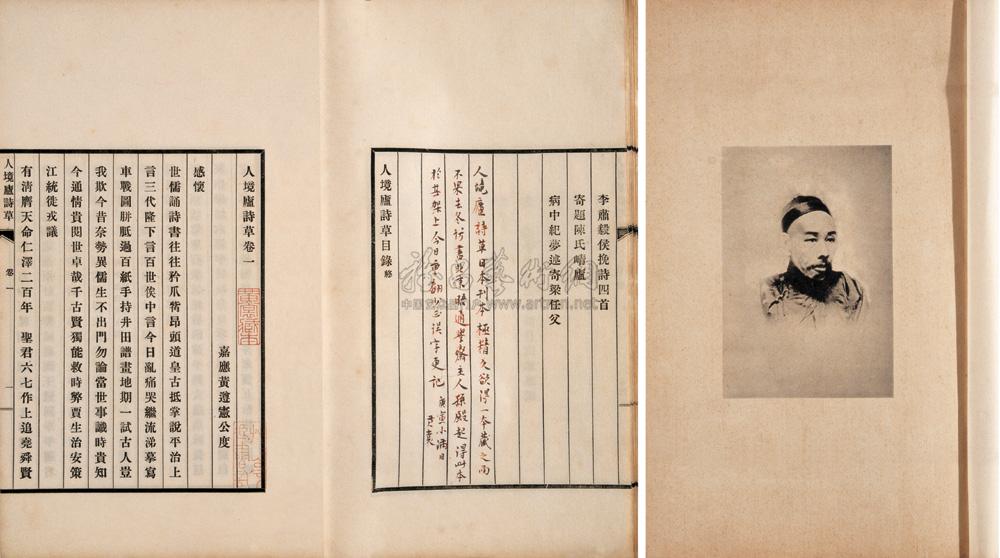 李肅毅侯挽詩四首
寄題陳氏崝廬
病中紀夢述寄梁任父
人境廬詩草日本刊本極精久欲得一本藏之而
不果去冬訪書北京晤通學齋主人孫殿起得此本
於架上今日重翻誤字更記
庚寅小滿日
人境廬詩草目錄終
人境廬詩草卷一
嘉應黃遵憲公度
感懷
世儒誦詩書往往矜爪觜昂頭道皇古抵掌說平治上
言三代隆下言百世俟中言今日亂痛哭繼流涕摹寫
車戰圖胼胝過百紙手持井田譜畫地期一試古人豈
我欺今昔奈勢異儒生不出門勿論當世事識時貴知
今通情貴閱世卓哉千古賢獨能救時弊賈生治安策
江統徙戎議
有清膺天命仁澤二百年 聖君六七作上追堯舜賢
人境廬詩草 卷一 一